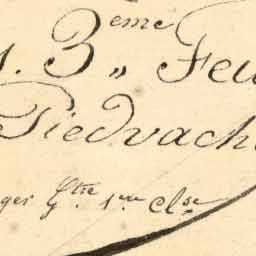 1. 3eme „ Feu
Piedvach
ger Gtre 1ere Clse